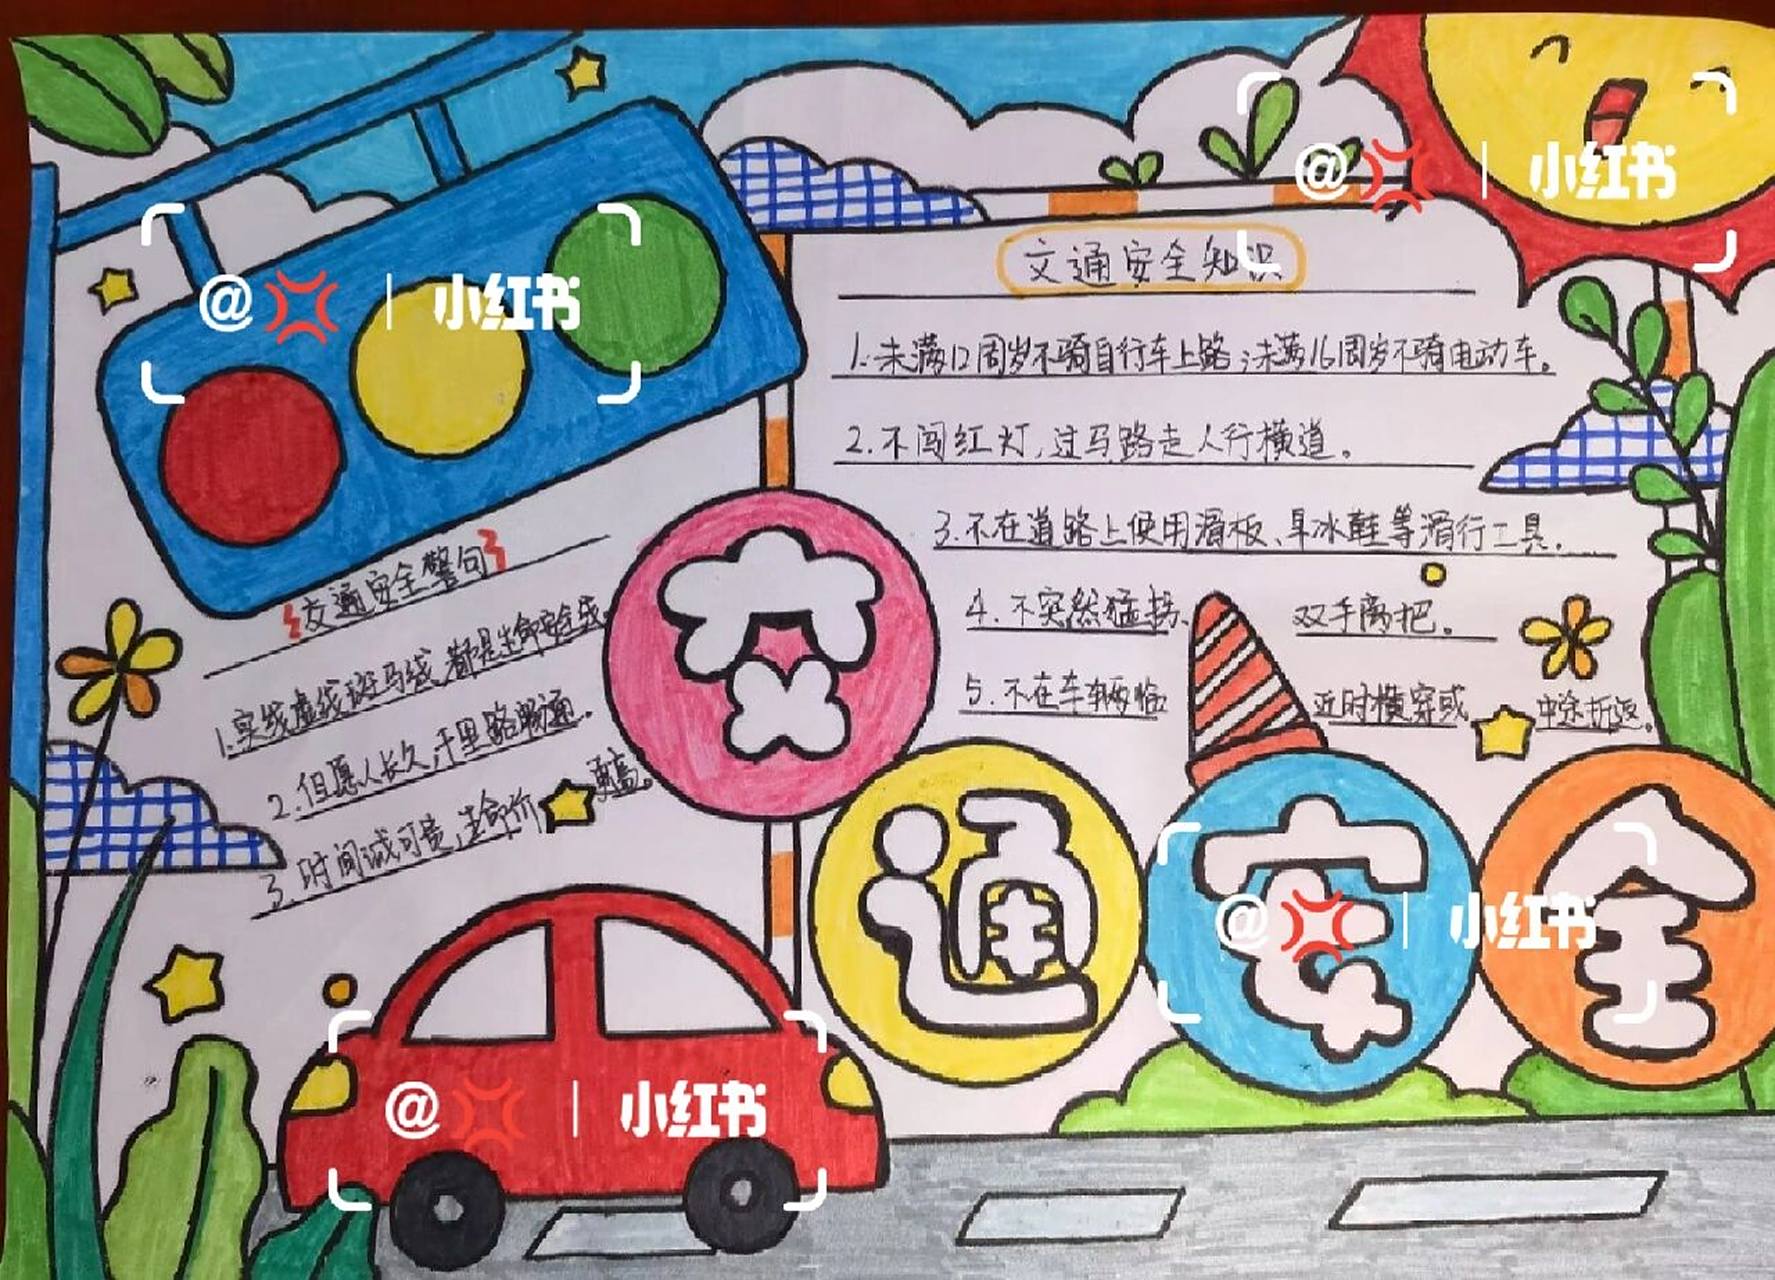 交通安全知识
1.未满12周岁不骑自行车上路;未满16周岁不骑电动车。
2.不闯红灯,过马路走人行横道。
3.不在道路上使用滑板、旱冰鞋等滑行工具。
4.不突然猛拐、双手离把。
5.不在车辆临近时横穿或中途折返。
交通安全警句
1.实线虚线斑马线,都是生命安全线。
2.但愿人长久,千里路畅通。
3.时间诚可贵,生命价更高。
交
通
安
全
@ | 小红书
@ | 小红书
@ | 小红书
@ | 小红书